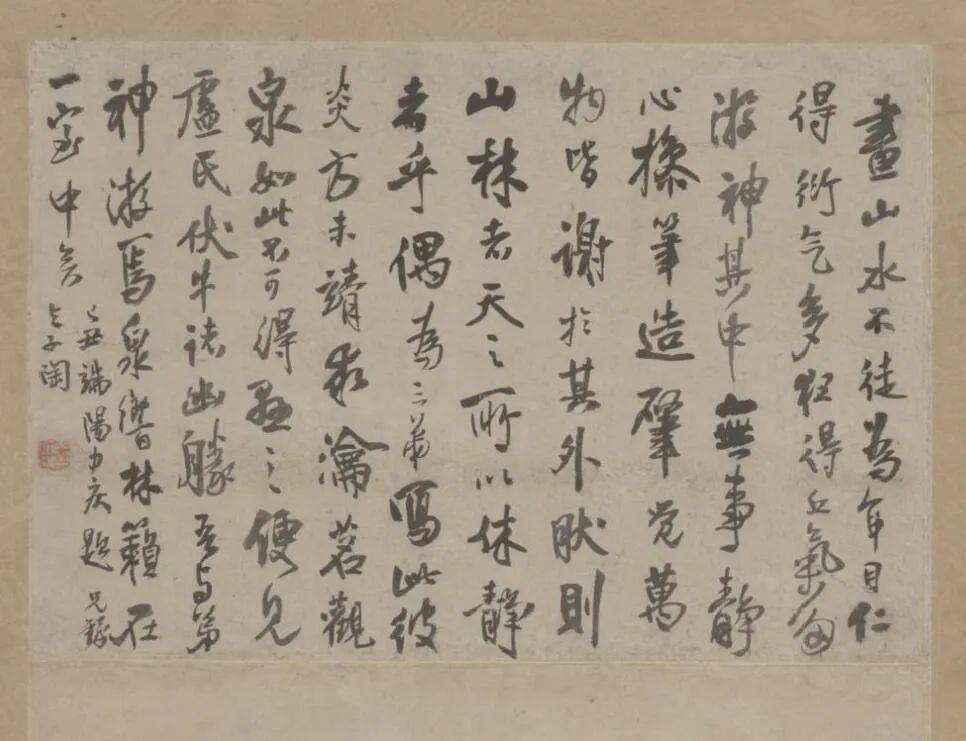 畫山水不徒為耳目仁
得气多得丘氣
游神其中無事靜
心操筆造覺萬
物皆謝於其外肰則
山林者天之所以休靜
者乎偶為三弟寫此彼
炎方未靖瀹茗觀
泉如此不可得之便見
廬氏伏牛諸幽勝吾与弟
神游焉泉響林籟在
一室中矣
乙丑端陽中題兄
子陶